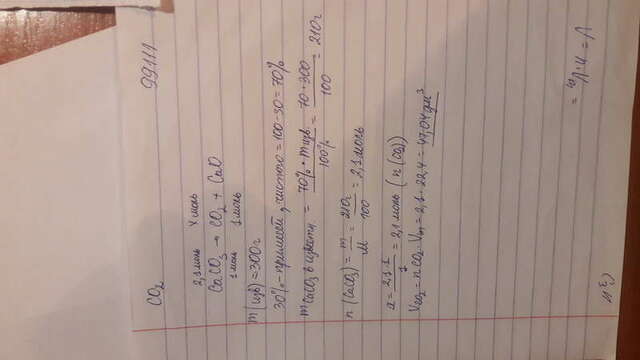 CO₂ 99111
2,1 моль х моль
CaCO₃ → CO₂ + CaO
1 моль 1 моль
m(изв) = 300г
30% - примесей, чистого = 100-30 = 70%
m CaCO₃ в известн. = 70% · m изв. / 100% = 70 · 300 / 100 = 210г
n (CaCO₃) = m / M = 210г / 100 = 2,1 моль
x = 2,1 · 1 / 1 = 2,1 моль (n(CO₂))
V CO₂ = n CO₂ · Vm = 2,1 · 22,4 = 47,04 дм³
V = n · Vm =